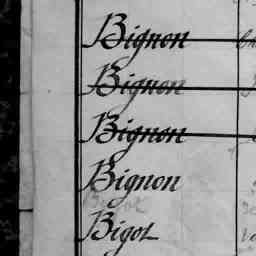 Bignon
Bignon
Bignon
Bignon
Bigot
Bigot